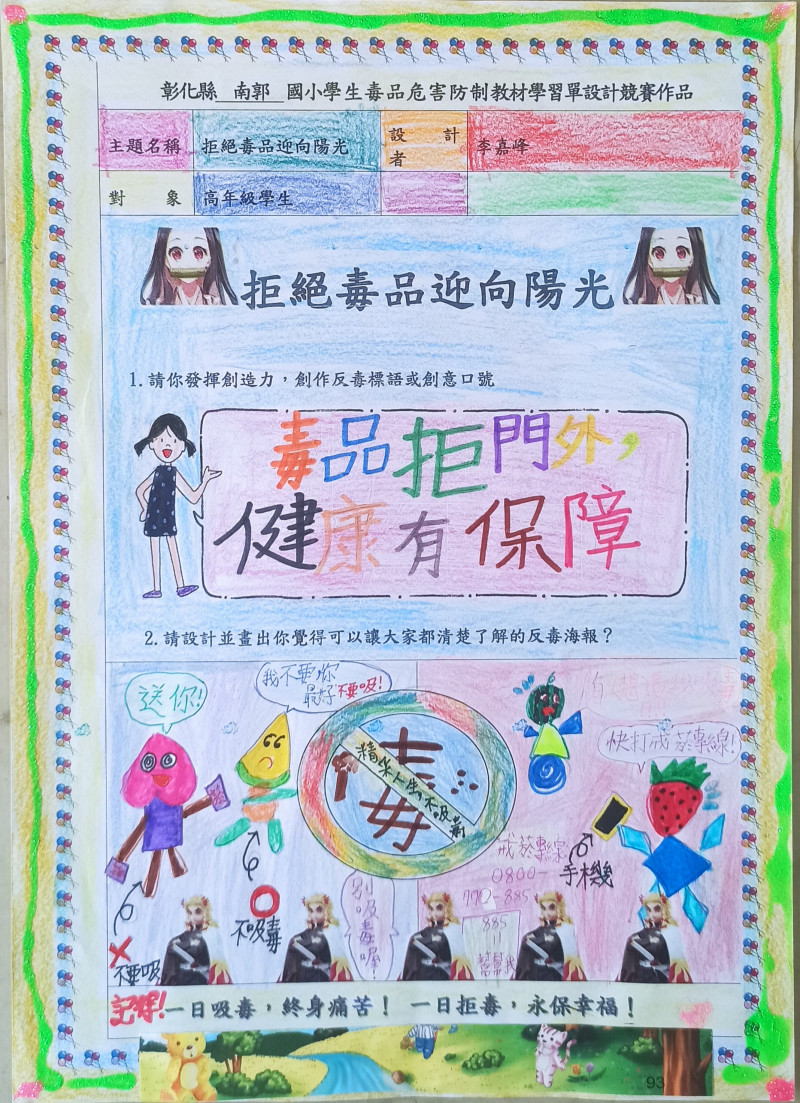 彰化縣 南郭 國小學生毒品危害防制教材學習單設計競賽作品
主題名稱 拒絕毒品迎向陽光 設計者 李嘉峰
對象 高年級學生
拒絕毒品迎向陽光
1. 請你發揮創造力，創作反毒標語或創意口號
毒品拒門外，
健康有保障
2. 請設計並畫出你覺得可以讓大家都清楚了解的反毒海報？
送你!
我不要你
最好不要吸!
毒
精采人生不吸毒
快打戒菸專線!
戒菸專線
0800-
770-885
885
手機
別吸毒喔!
不吸毒
不要吸
記得!一日吸毒，終身痛苦！ 一日拒毒，永保幸福！
93